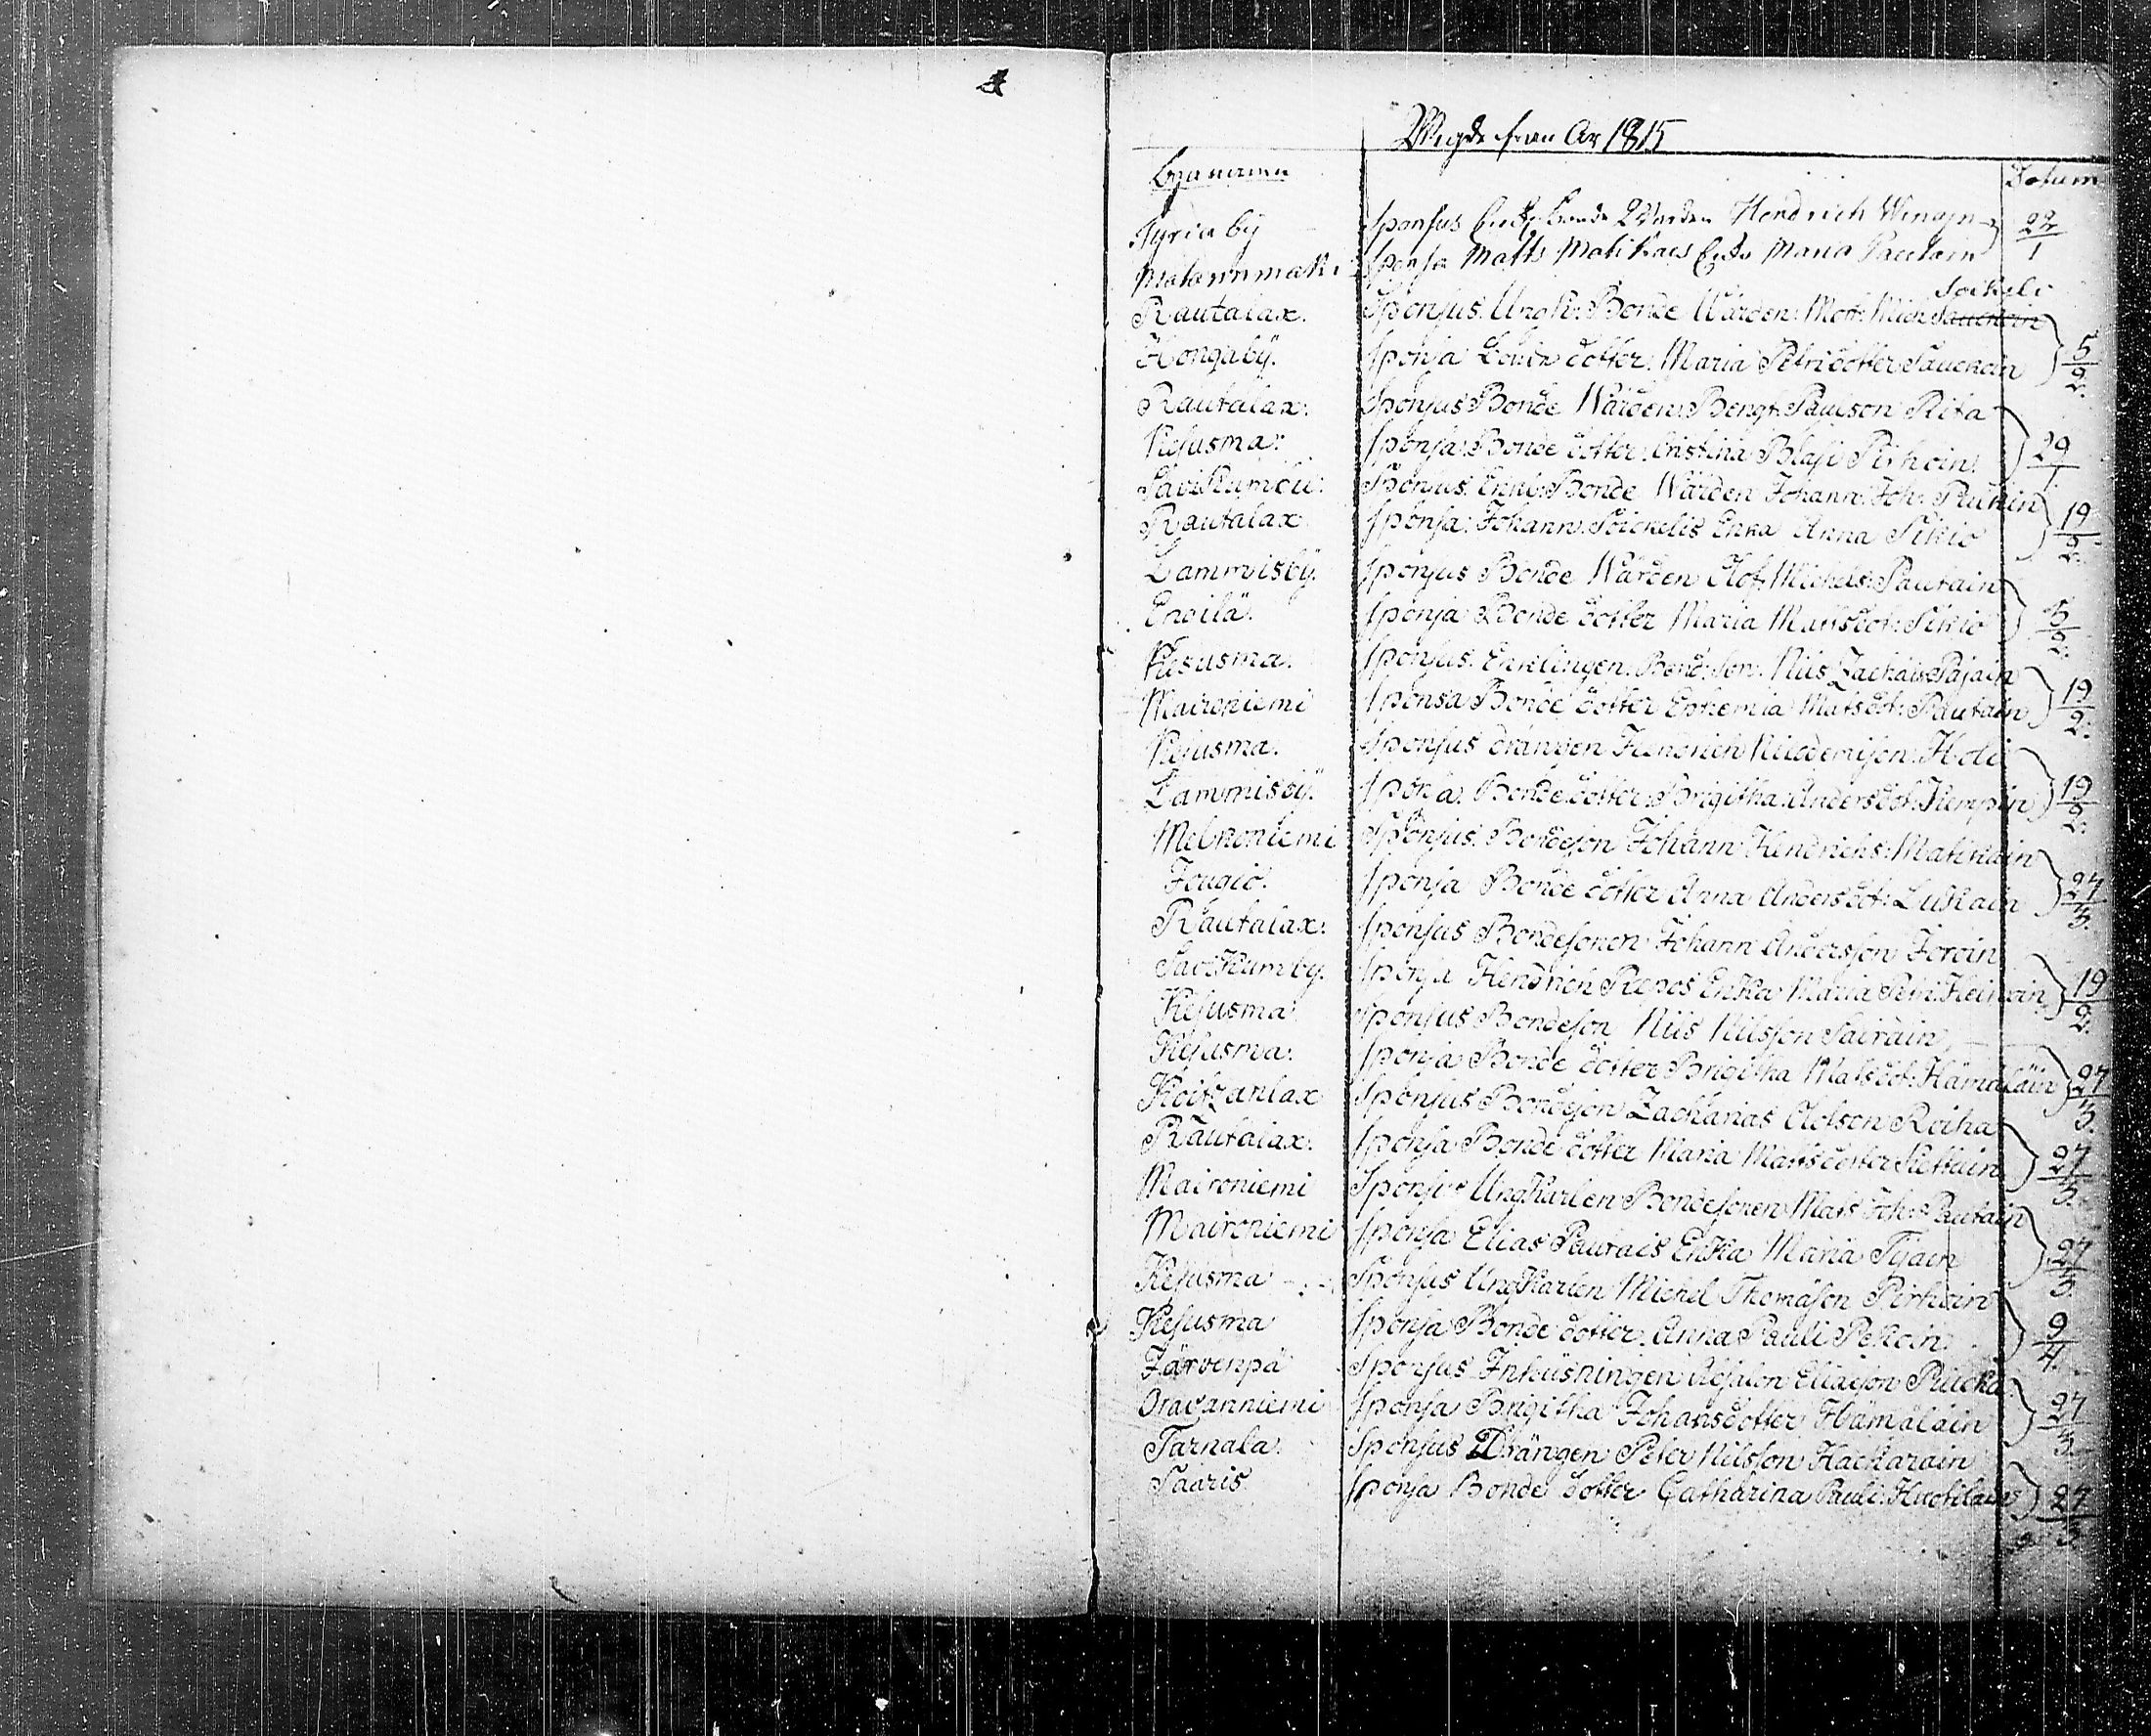 Wigde från År 1815
Byanamn Datum
Tyriaby Sponsus Bonde Hendrich 22/1
Sponsa Matts Enka Maria Pautain
Soikeli
Rautalax. Sponsus. Ungk: Bonde Wärden: Mich: Sauckoin
Hongaby. Sponsa dotter: Maria Petridotter Sauckoin 5/2.
Rautalax: Sponsus Bonde Wärden: Bengt Paulson Rita
Kesusma: Sponsa: Bonde dotter: Cristina Blasi Pirhoin 29/1.
Savikumbu: Sponsus. Enkl: Bonde Wärden Johann: Joh: Ruckin
Rautalax Sponsa: Johann: Soickelis Enka Anna Sikiö 19/2.
Lammisby. Sponsus Bonde Wärden Olof Michels: Pautain
Enoilä. Sponsa Bonde dotter Maria Mattsdot: Sikiö 5/2.
Kesusma. Sponsus. Enklingen. Bond: Son: Nils Zachais: Pajain
Maironiemi Sponsa Bonde dotter Ephemia Matsdot: Pautain 19/2.
Kesusma. Sponsus drängen Hendrich Nicodemison: Hodi
Lammisby. Sponsa. Bonde dotter: Brigitha: Andersdot: Kempin 19/2.
Melnoniemi Sponsus. Bondeson Johann Hendrichs: Matikain
Jougio. Sponsa Bonde dotter Anna Andersdot: Luskain 27/3.
Rautalax: Sponsus Bondesonen Johann Andersson Joroin
Savikumby. Sponsa Hendrich Repos Enka Maria Petri: Heinoin 19/2.
Kesusma Sponsus Bondeson Nils Nilsson Sairain
Kesusma. Sponsa Bonde dotter Brigitha Matsdot: Hämäläin 27/3.
Koitzanlax Sponsus Bondeson Zacharias Olofson Roiha
Rautalax. Sponsa Bonde dotter Maria Mattsdotter Kettuin 27/3.
Maironiemi Sponsus Ungkarlen Bondesonen Mats Joh: Pautain
Maironiemi Sponsa Elias Pautais Enka Maria Tijain 27/3.
Kesusma Sponsus Ungkarlen Michel Thomason Pirhoin
Kesusma Sponsa Bonde dotter. Anna Pauli Pekoin 9/4.
Järvenpä Sponsus Inhüsningen Absalon Eliason Puicko
Oravanniemi Sponsa Brigitha Johansdotter Hämäläin 27/3.
Tarnala. Sponsus Drängen Peter Nilsson Hackarain
Saaris Sponsa Bonde dotter Catharina Pauli: Huotilain 27/3.